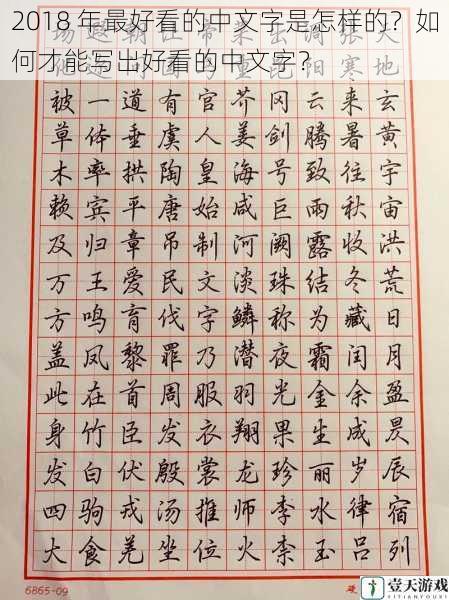 2018 年最好看的中文字是怎样的？如
何才能写出好看的中文字？
天地玄黄宇宙洪荒日月盈昃辰宿列
张寒来暑往秋收冬藏闰余成岁律吕
调阳云腾致雨露结为霜金生丽水玉
出昆冈剑号巨阙珠称夜光果珍李柰
菜重芥姜海咸河淡鳞潜羽翔龙师火
帝鸟官人皇始制文字乃服衣裳推位
让国有虞陶唐吊民伐罪周发殷汤坐
朝问道垂拱平章爱育黎首臣伏戎羌
遐迩一体率宾归王鸣凤在竹白驹食
场化被草木赖及万方盖此身发四大
6865-09
壹天游戏
YITIANYOUXI